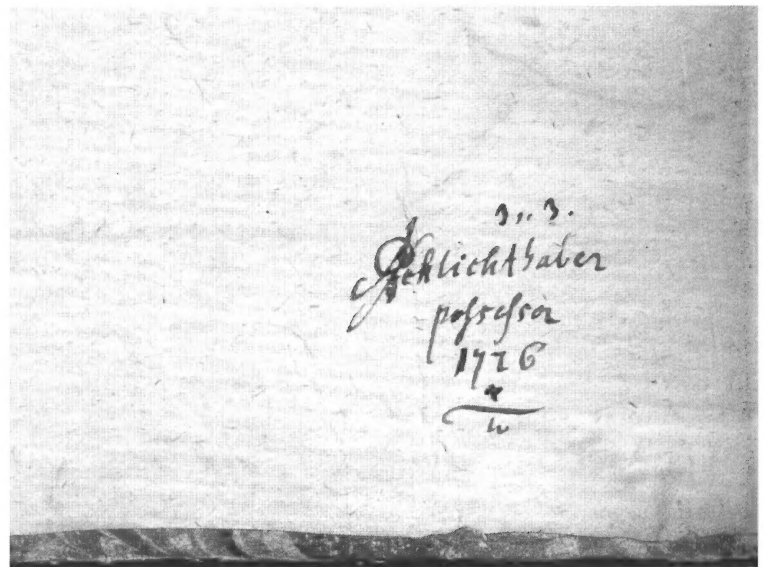 3.. 3.
Schlichthaber
possessor
1726